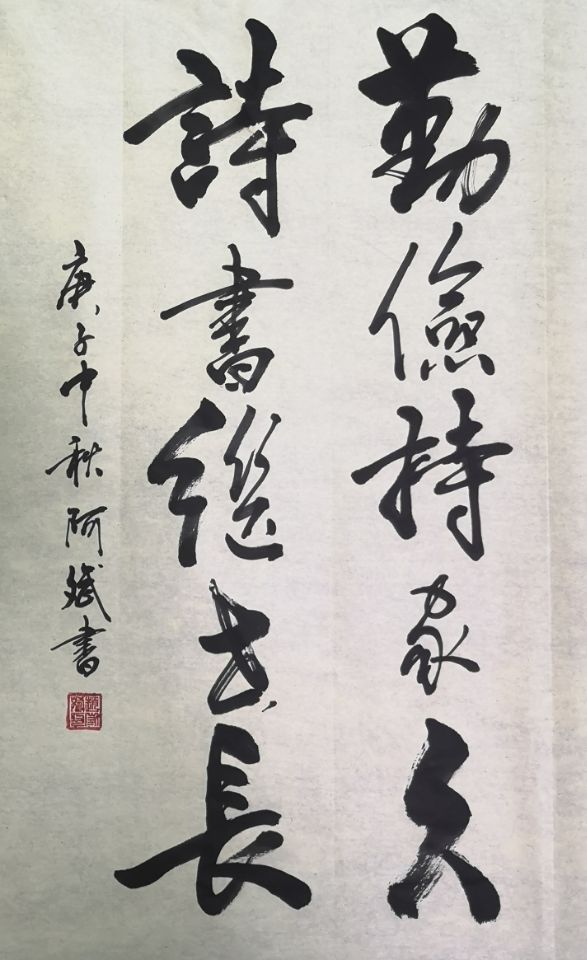 勤儉持家久
詩書继世長
庚子中秋阿斌書